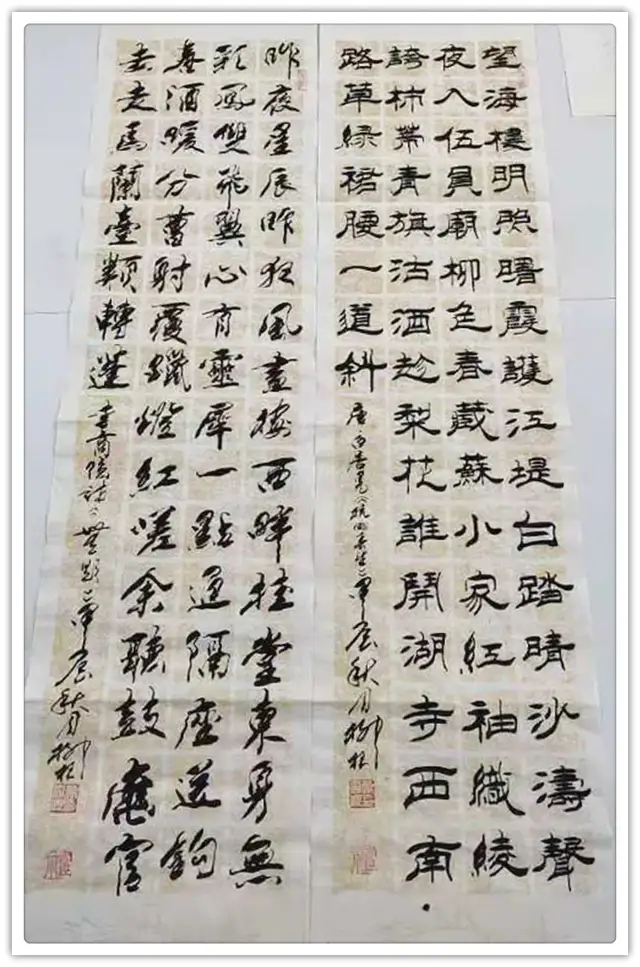 望海樓明照曙霞護江堤白踏晴沙濤聲
夜入伍員廟柳色春藏蘇小家紅袖織綾
誇柿帶青旗沽酒趁梨花誰開湖寺西南
路草綠裙腰一道斜
唐白居易《杭州春望》甲辰秋月柳
昨夜星辰昨夜風畫樓西畔桂堂東身無
彩鳳雙飛翼心有靈犀一點通隔座送鉤
春酒暖分曹射覆蠟燈紅嗟余聽鼓應官
去走馬蘭臺類轉蓬
李商隱詩《無題》甲辰秋月柳